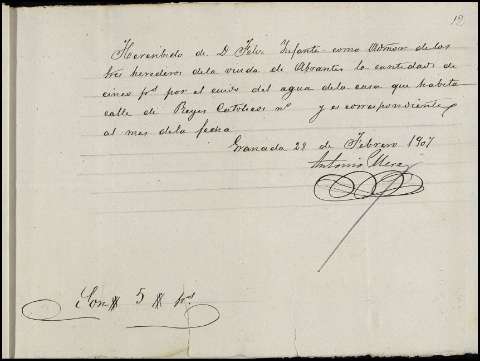 12
He recibido de D. Felix Infante como Admor. de los
tres herederos de la viuda de Abrantes la cantidad de
cinco pts por el cuido del agua de la casa que habita
calle de Reyes Catolicos nº y es correspondiente
al mes de la fecha
Granada 28 de Febrero 1907
Antonio
Son # 5 # pts